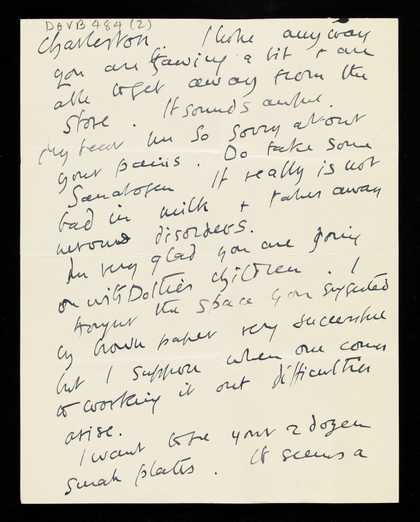 DAVB 484 (2)
Charleston. I hope anyway
you are gaining a bit & are
able to get away from the
stove. It sounds awful.
My bear I'm so sorry about
your pains. Do take some
Sanatogen It really is not
bad in milk & takes away
nervous disorders.
I'm very glad you are going
on with Dollies children. I
thought the space you suggested
by brown paper very successful
but I suppose when one comes
to working it out difficulties
arise.
I want to see your 2 dozen
small plates. It seems a